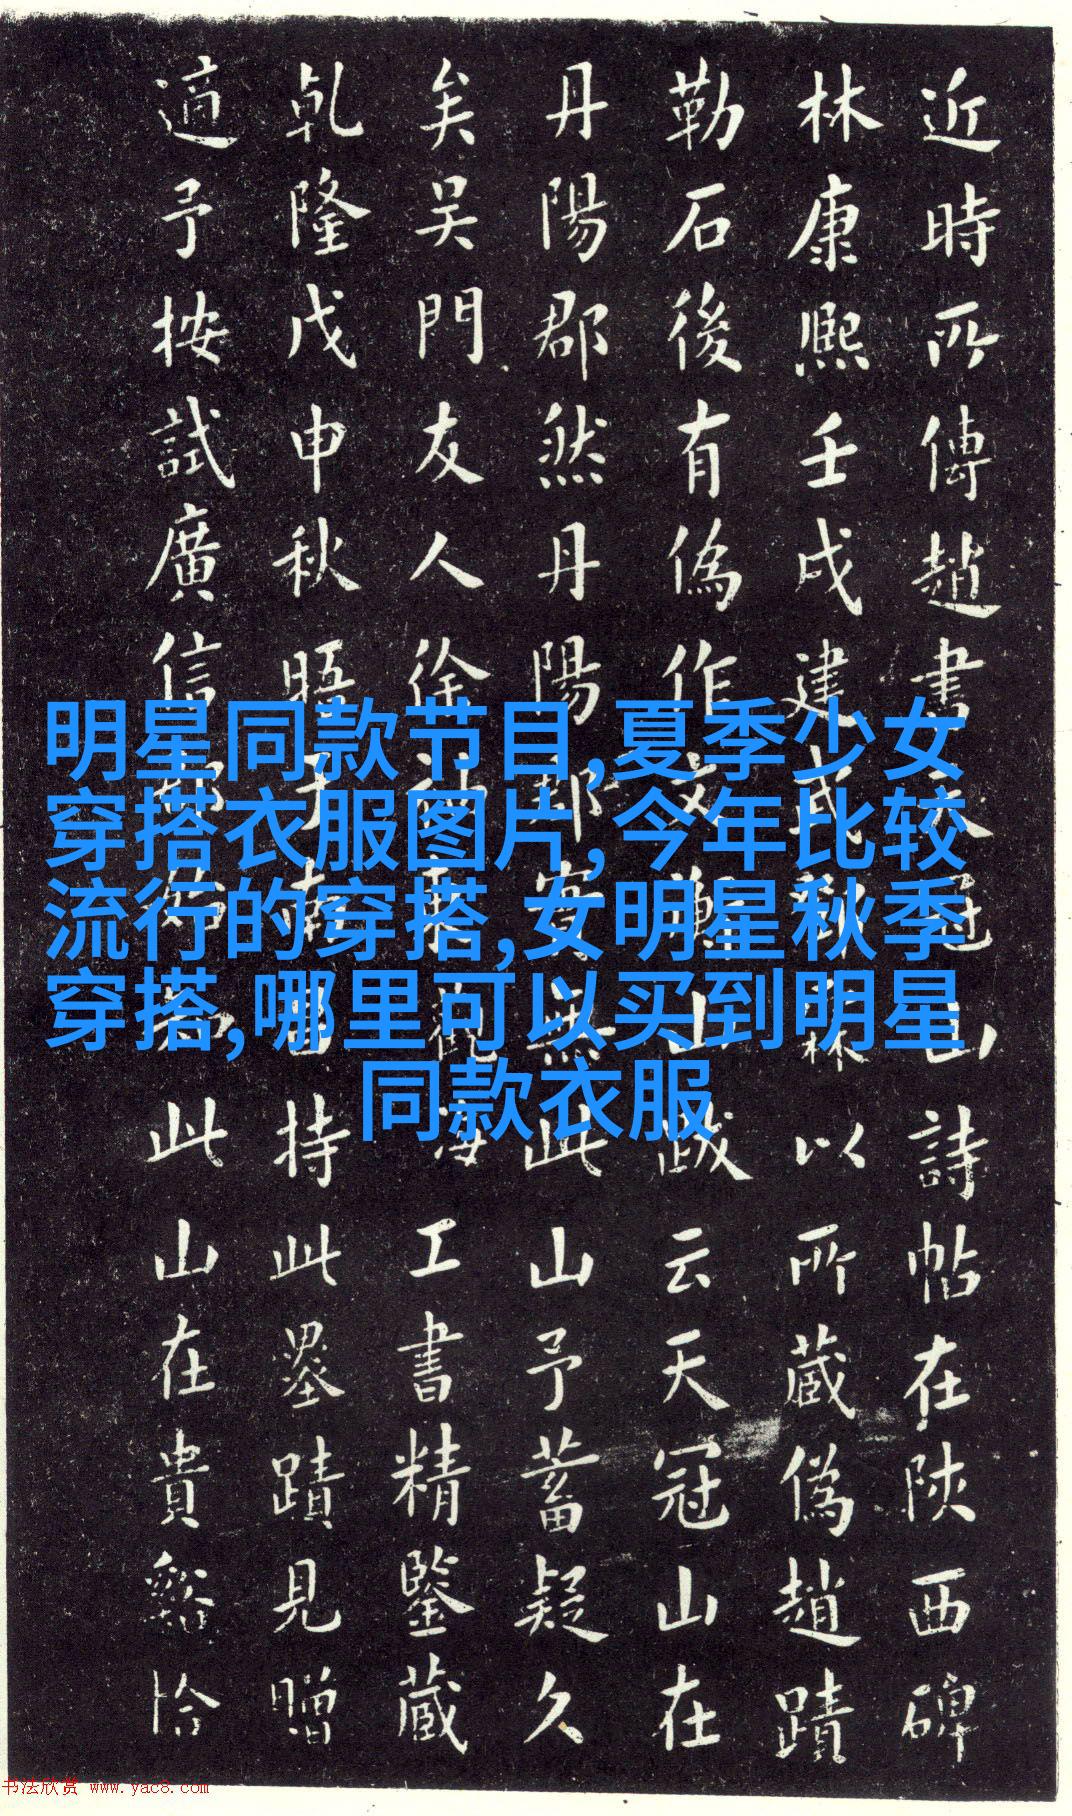 近時所傳趙書天冠山詩帖在陝西碑
林康熙壬戌建武以所蔵偽趙蹟
勒石後有偽作文衡山跋云天冠山在
丹陽郡然丹陽郡實無此山予蓄疑久
矣吴門友人徐觀海工書精鑒蔵
乹隆戊申秋晤于南昌持此墨蹟見贈
適予按試廣信郡此山在貴谿恰
明星同款节目,夏季少女
穿搭衣服图片,今年比较
流行的穿搭,女明星秋季
穿搭,哪里可以买到明星
同款衣服
书法欣赏 www.yac8.com